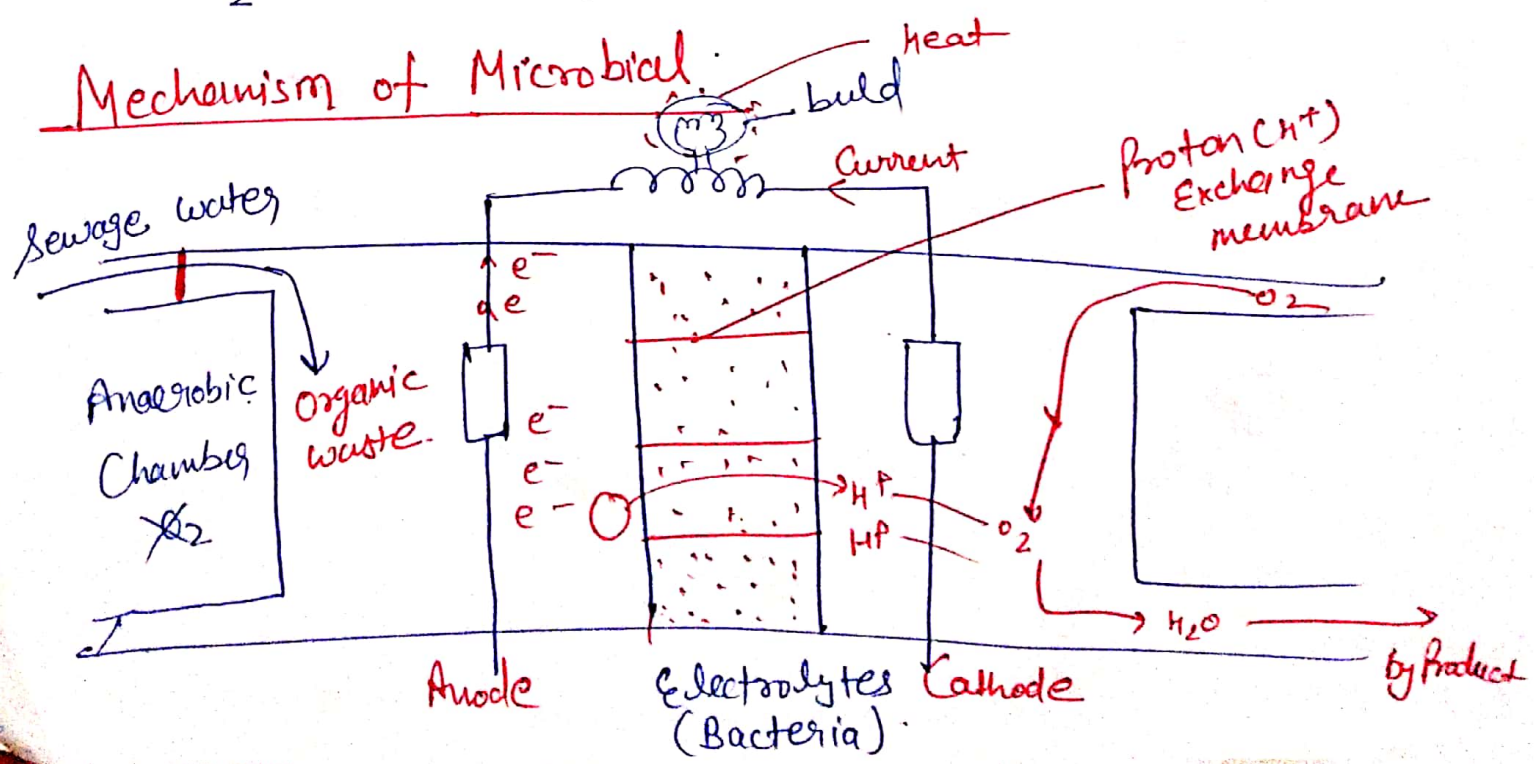 Mechanism of Microbial
Heat
buld
Current
Proton (H+)
Exchange
membrane
Sewage water
e-
e
O2
Anaerobic
Chamber
O2
Organic
waste.
e-
e-
e-
H+
H+
O2
H2O
by Product
Anode
Electrolytes
(Bacteria)
Cathode